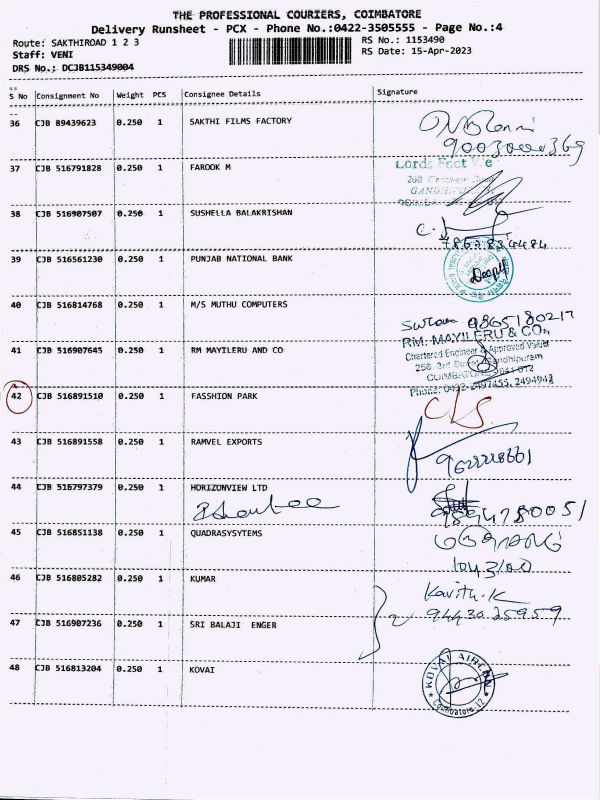 THE PROFESSIONAL COURIERS, COIMBATORE
Delivery Runsheet - PCX - Phone No.:0422-3505555 - Page No.:4
Route: SAKTHIROAD 1 2 3 RS No.: 1153490
Staff: VENI RS Date: 15-Apr-2023
DRS No.: DCJB115349004
S No Consignment No Weight PCS Consignee Details Signature
36 CJB 89439623 0.250 1 SAKTHI FILMS FACTORY
37 CJB 516791828 0.250 1 FAROOK M
Lords
38 CJB 516907507 0.250 1 SUSHELLA BALAKRISHAN
39 CJB 516561230 0.250 1 PUNJAB NATIONAL BANK
Deepa
40 CJB 516814768 0.250 1 M/S MUTHU COMPUTERS
9865180217
41 CJB 516907645 0.250 1 RM MAYILERU AND CO
RM. MAYILERU & CO.,
Chartered Engineer & Approved Valuer
Phone: 0422-2497455, 2494942
42 CJB 516891510 0.250 1 FASSHION PARK
43 CJB 516891558 0.250 1 RAMVEL EXPORTS
44 CJB 516797379 0.250 1 HORIZONVIEW LTD
45 CJB 516851138 0.250 1 QUADRASYSYTEMS
46 CJB 516805282 0.250 1 KUMAR
Kavitha.K
9443025959
47 CJB 516907236 0.250 1 SRI BALAJI ENGER
48 CJB 516813204 0.250 1 KOVAI
KOVAI AIRCON
Coimbatore-12